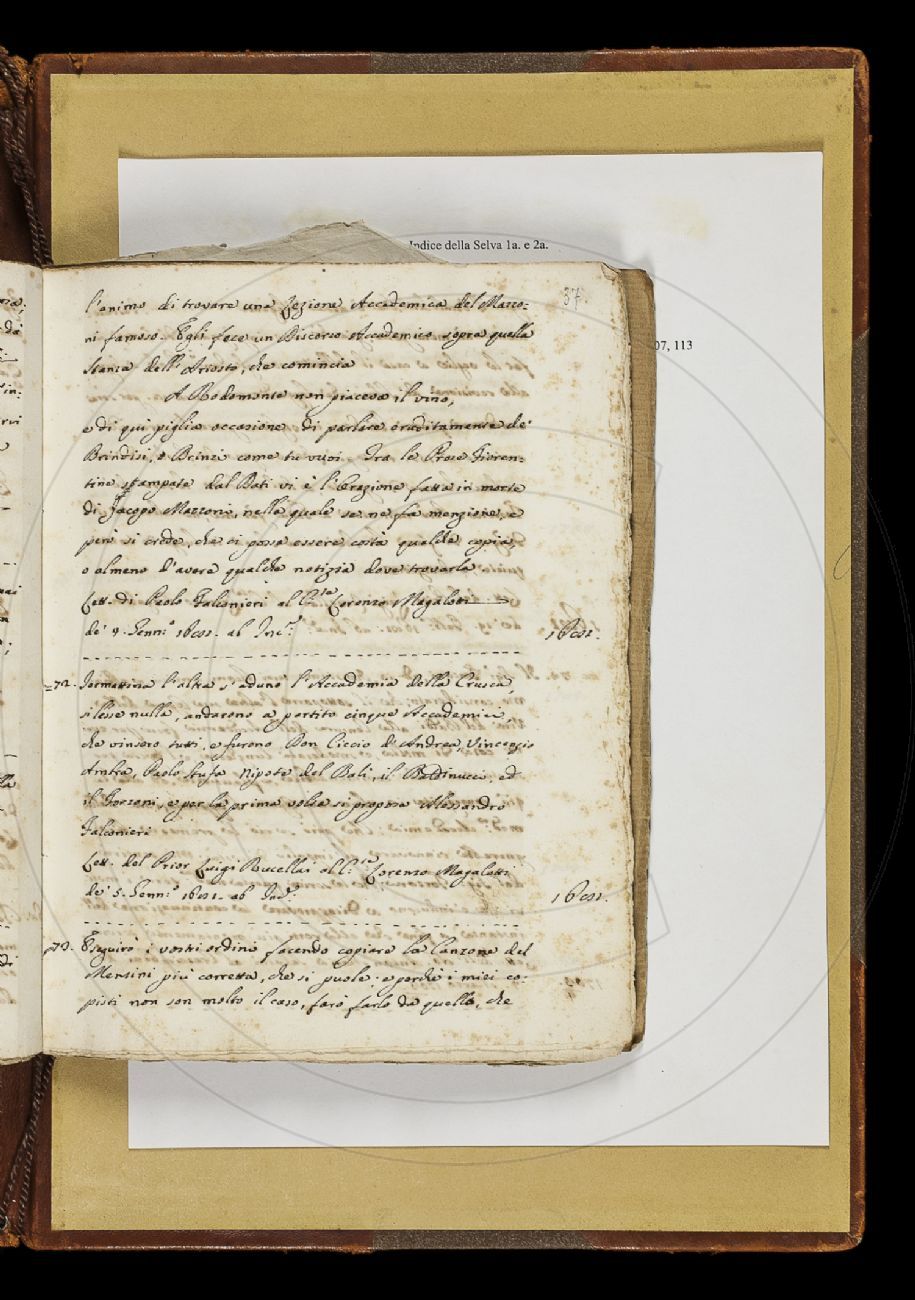 Indice della Selva 1a. e 2a.
37.
l'animo di trovare una Lezione Accademica del Mazzo=
ni famoso. Egli fece un Discorso Accademico sopra quella
stanza dell'Ariosto, che comincia
A Rodomonte non piaceva il vino,
e di qui piglia occasione di parlare eruditamente de'
Brindisi, o Brinzi come tu vuoi. Tra le Prose Fioren=
tine stampate dal Dati vi è l'Orazione fatta in morte
di Jacopo Mazzoni, nella quale se ne fa menzione, e
però si crede, che ci possa essere costà qualche copia,
o almeno d'avere qualche notizia dove trovarla.
Lett. di Paolo Falconieri al C.te Lorenzo Magalotti
de' 9. Genn.o 1691. ab Inc.e
1691.
=72. Jermattina l'altra s'adunò l'Accademia della Crusca,
si lesse nulla, andarono a partito cinque Accademici,
che vinsero tutti, e furono Don Ciccio d'Andrea, Vincenzio
Ambra, Paolo Stufa Nipote del Balì, il Baldinucci, ed
il Forzoni, e per la prima volta si propose Alessandro
Falconieri
Lett. del Prior Luigi Rucellai al C.te Lorenzo Magalotti
de' 5. Genn.o 1691. ab Inc.
1691.
73. Eseguirò i vostri ordini facendo copiare la Canzone del
Menzini più corretta, che si puole; e perchè i miei co=
pisti non son molto il caso, farò farlo da quello, che
07, 113